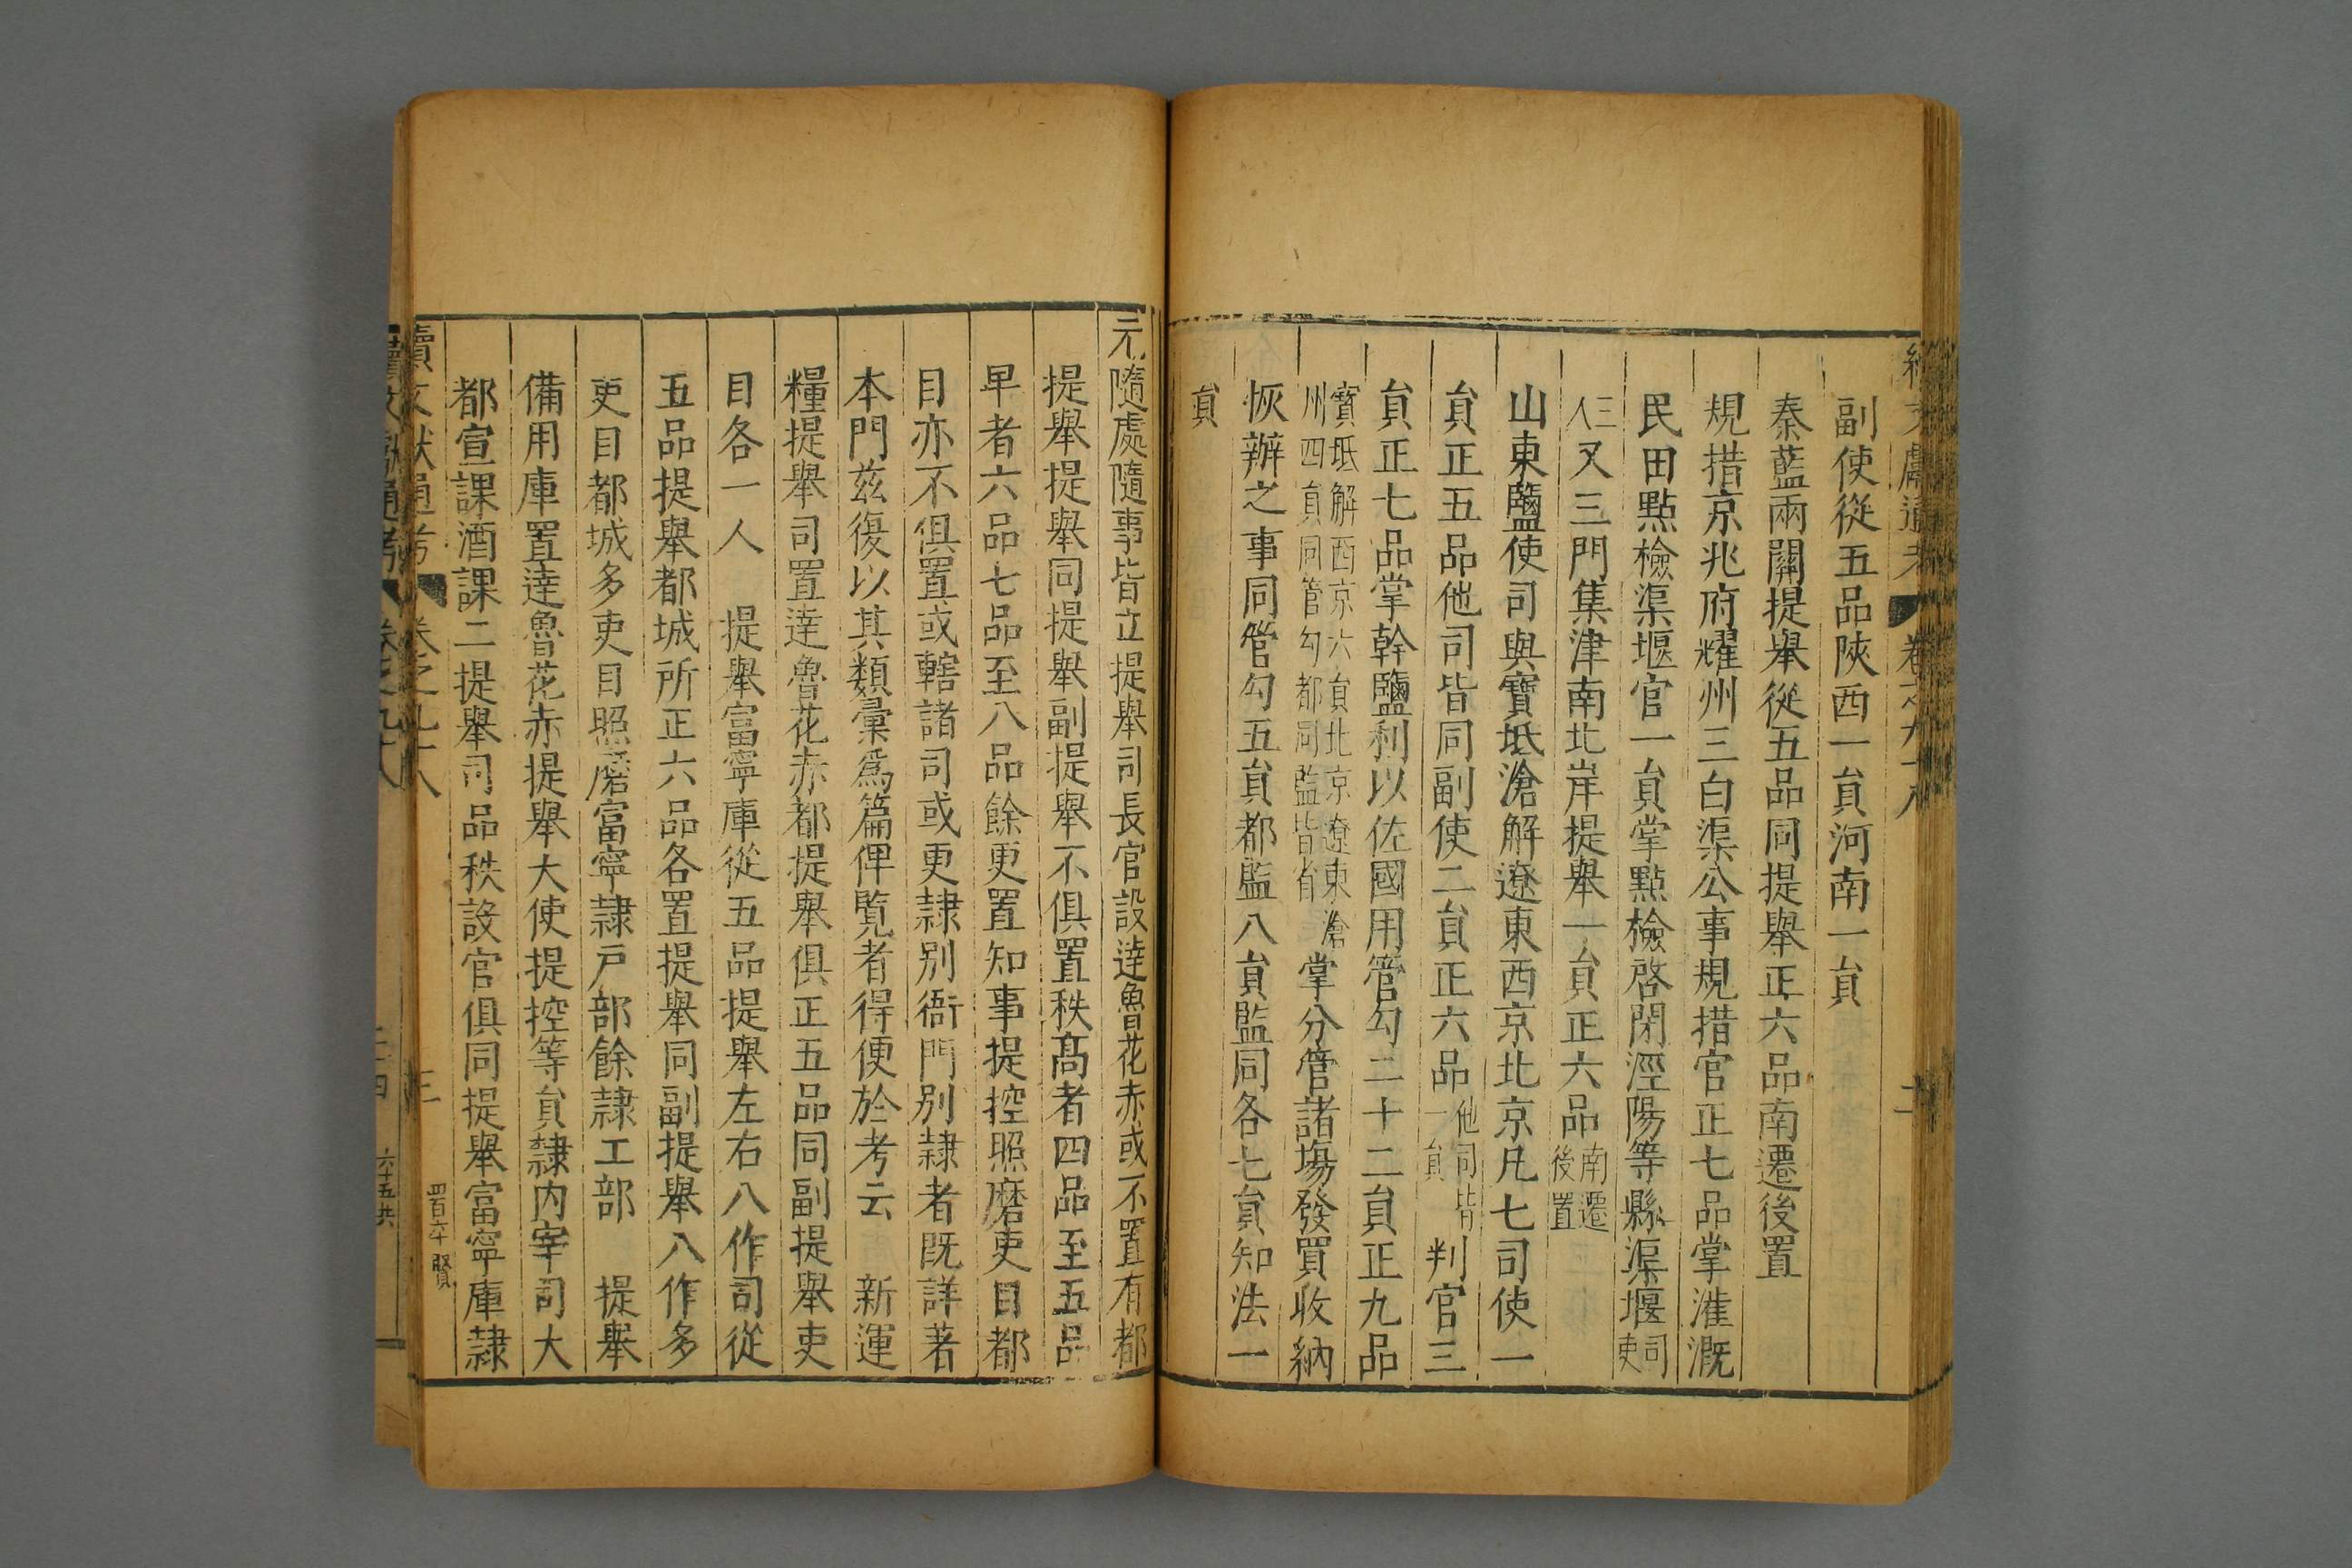 續文獻通考 卷之九十八 二
副使從五品陝西一貟河南一貟
秦藍兩關提舉從五品同提舉正六品南遷後置
規措京兆府耀州三白渠公事規措官正七品掌灌溉
民田點檢渠堰官一貟掌點檢啓閉涇陽等縣渠堰司吏
三人又三門集津南北岸提舉一貟正六品南遷後置
山東鹽使司與寶坻滄解遼東西京北京凡七司使一
貟正五品他司皆同副使二貟正六品他司皆一貟判官三
貟正七品掌幹鹽利以佐國用管勾二十二貟正九品
寶坻解西京六貟北京遼東滄州四貟同管勾都同監皆省掌分管諸塲發買收納
恢辦之事同管勾五貟都監八貟監同各七貟知法一
貟
元隨處隨事皆立提舉司長官設達魯花赤或不置有都
提舉提舉同提舉副提舉不俱置秩髙者四品至五品
早者六品七品至八品餘更置知事提控照磨吏目都
目亦不俱置或轄諸司或更隷別衙門別隷者既詳著
本門兹復以其類彙爲篇俾覽者得便於考云 新運
糧提舉司置達魯花赤都提舉俱正五品同副提舉吏
目各一人 提舉富寧庫從五品提舉左右八作司從
五品提舉都城所正六品各置提舉同副提舉八作多
吏目都城多吏目照磨富寧隷戸部餘隷工部 提舉
備用庫置達魯花赤提舉大使提控等貟隷内宰司大
都宣課酒課二提舉司品秩設官俱同提舉富寧庫隷
續文獻通考 卷之九十八 三 四百六十 賢
續文獻通考 卷之九十八 六十五共